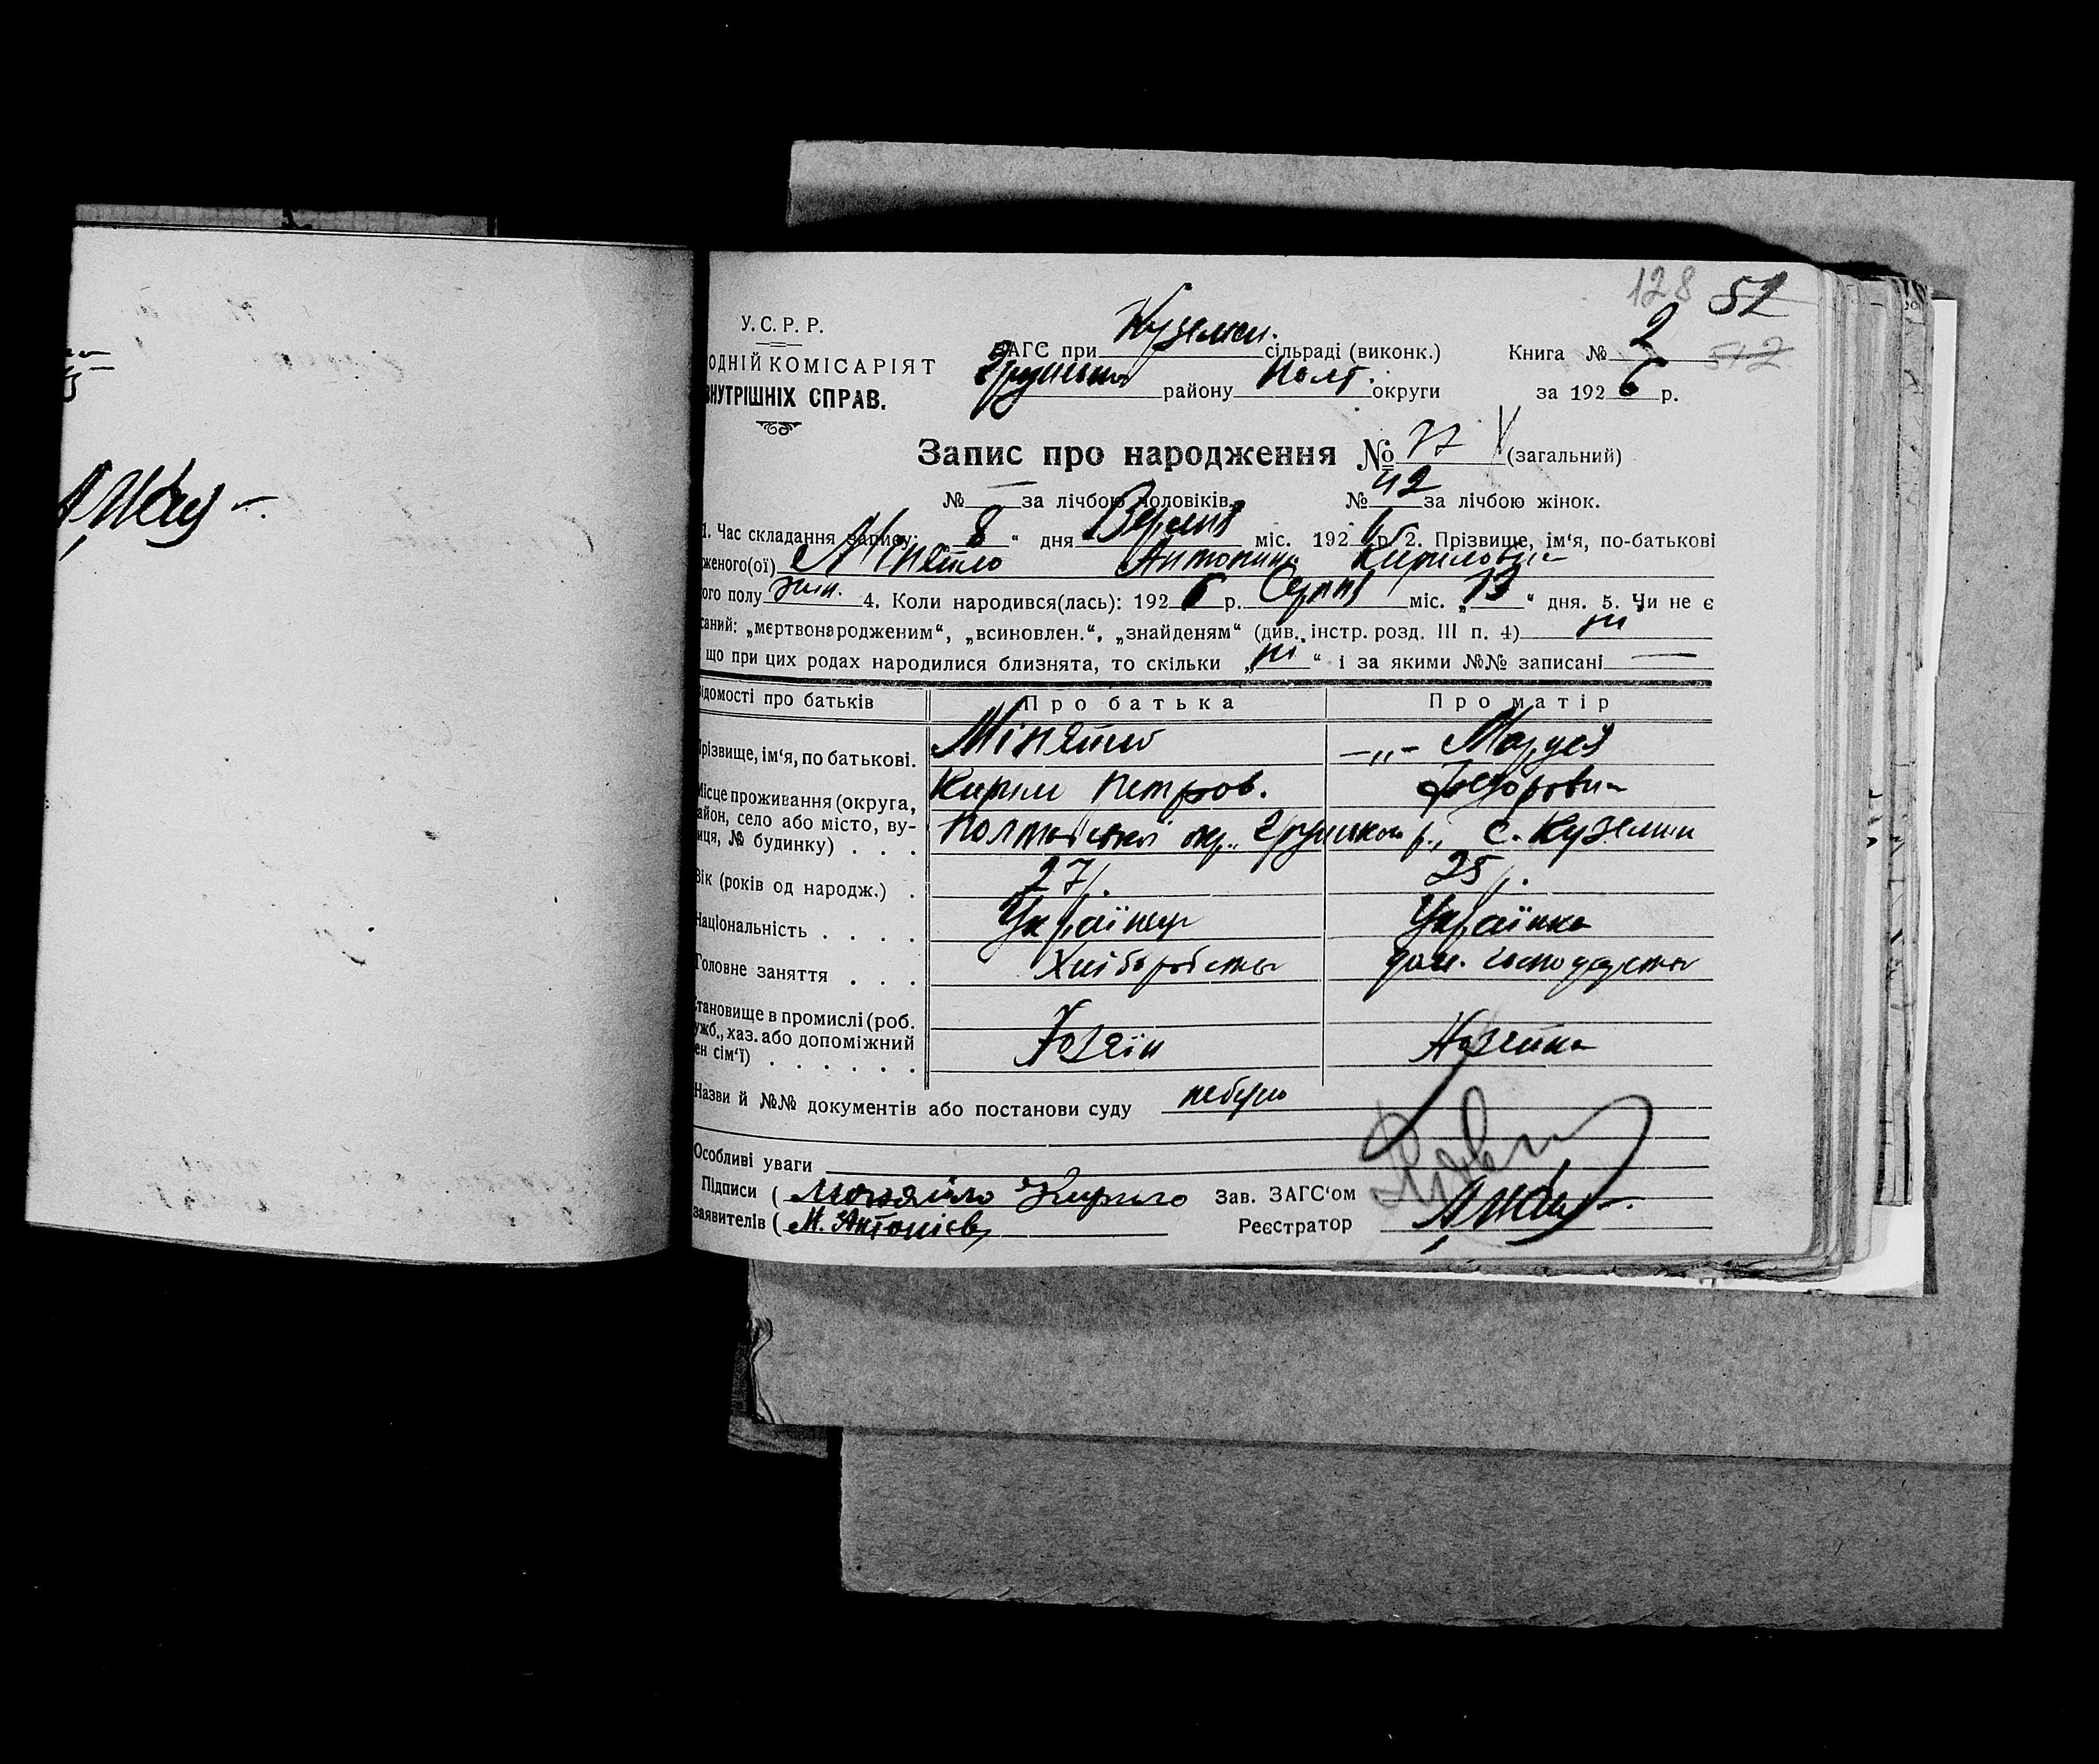 128 51
У.С.Р.Р.
ОДНІЙ КОМІСАРІЯТ
ВНУТРІШНІХ СПРАВ.
ЗАГС при Куземен. сільраді (виконк.) Книга № 2 512
району Полт. округи за 1926 р.
Запис про народження № 77 (загальний)
№ — за лічбою чоловіків. № 42 за лічбою жінок.
1. Час складання запису: „8“ дня Вересня міс. 1926 р. 2. Прізвище, ім‘я, по-батькові
женого(ої) Міняйло Антонина Кириловна
ого полу жін. 4. Коли народився(лась): 1926 р. Серпня міс. „13“ дня. 5. Чи не є
саний: „мертвонародженим“, „всиновлен.“, „знайденям“ (див. інстр. розд. III п. 4) ні
що при цих родах народилися близнята, то скільки „ні“ і за якими №№ записані —
ідомості про батьків Про батька Про матір
Прізвище, ім‘я, по батькові. Міняйло —„— Маруся
Кирило Петров. Федоровна
Місце проживання (округа,
айон, село або місто, ву-
иця, № будинку) . . . Полтавської окр., Грунськ р., с. Куземин
Вік (років од народж.) . 27 р. 25 р.
Національність . . . . Українець Українка
Головне заняття . . . Хліборобство дом. господарство
тановище в промислі (роб.
ужб., хаз. або допоміжний
ен сім‘ї) . . . . . . Хозяїн Хозяйка
Назви й №№ документів або постанови суду небуло
Особливі уваги
Підписи ( Міняйло Кирило Зав. ЗАГС‘ом
заявителів ( М. Антонієв Реєстратор